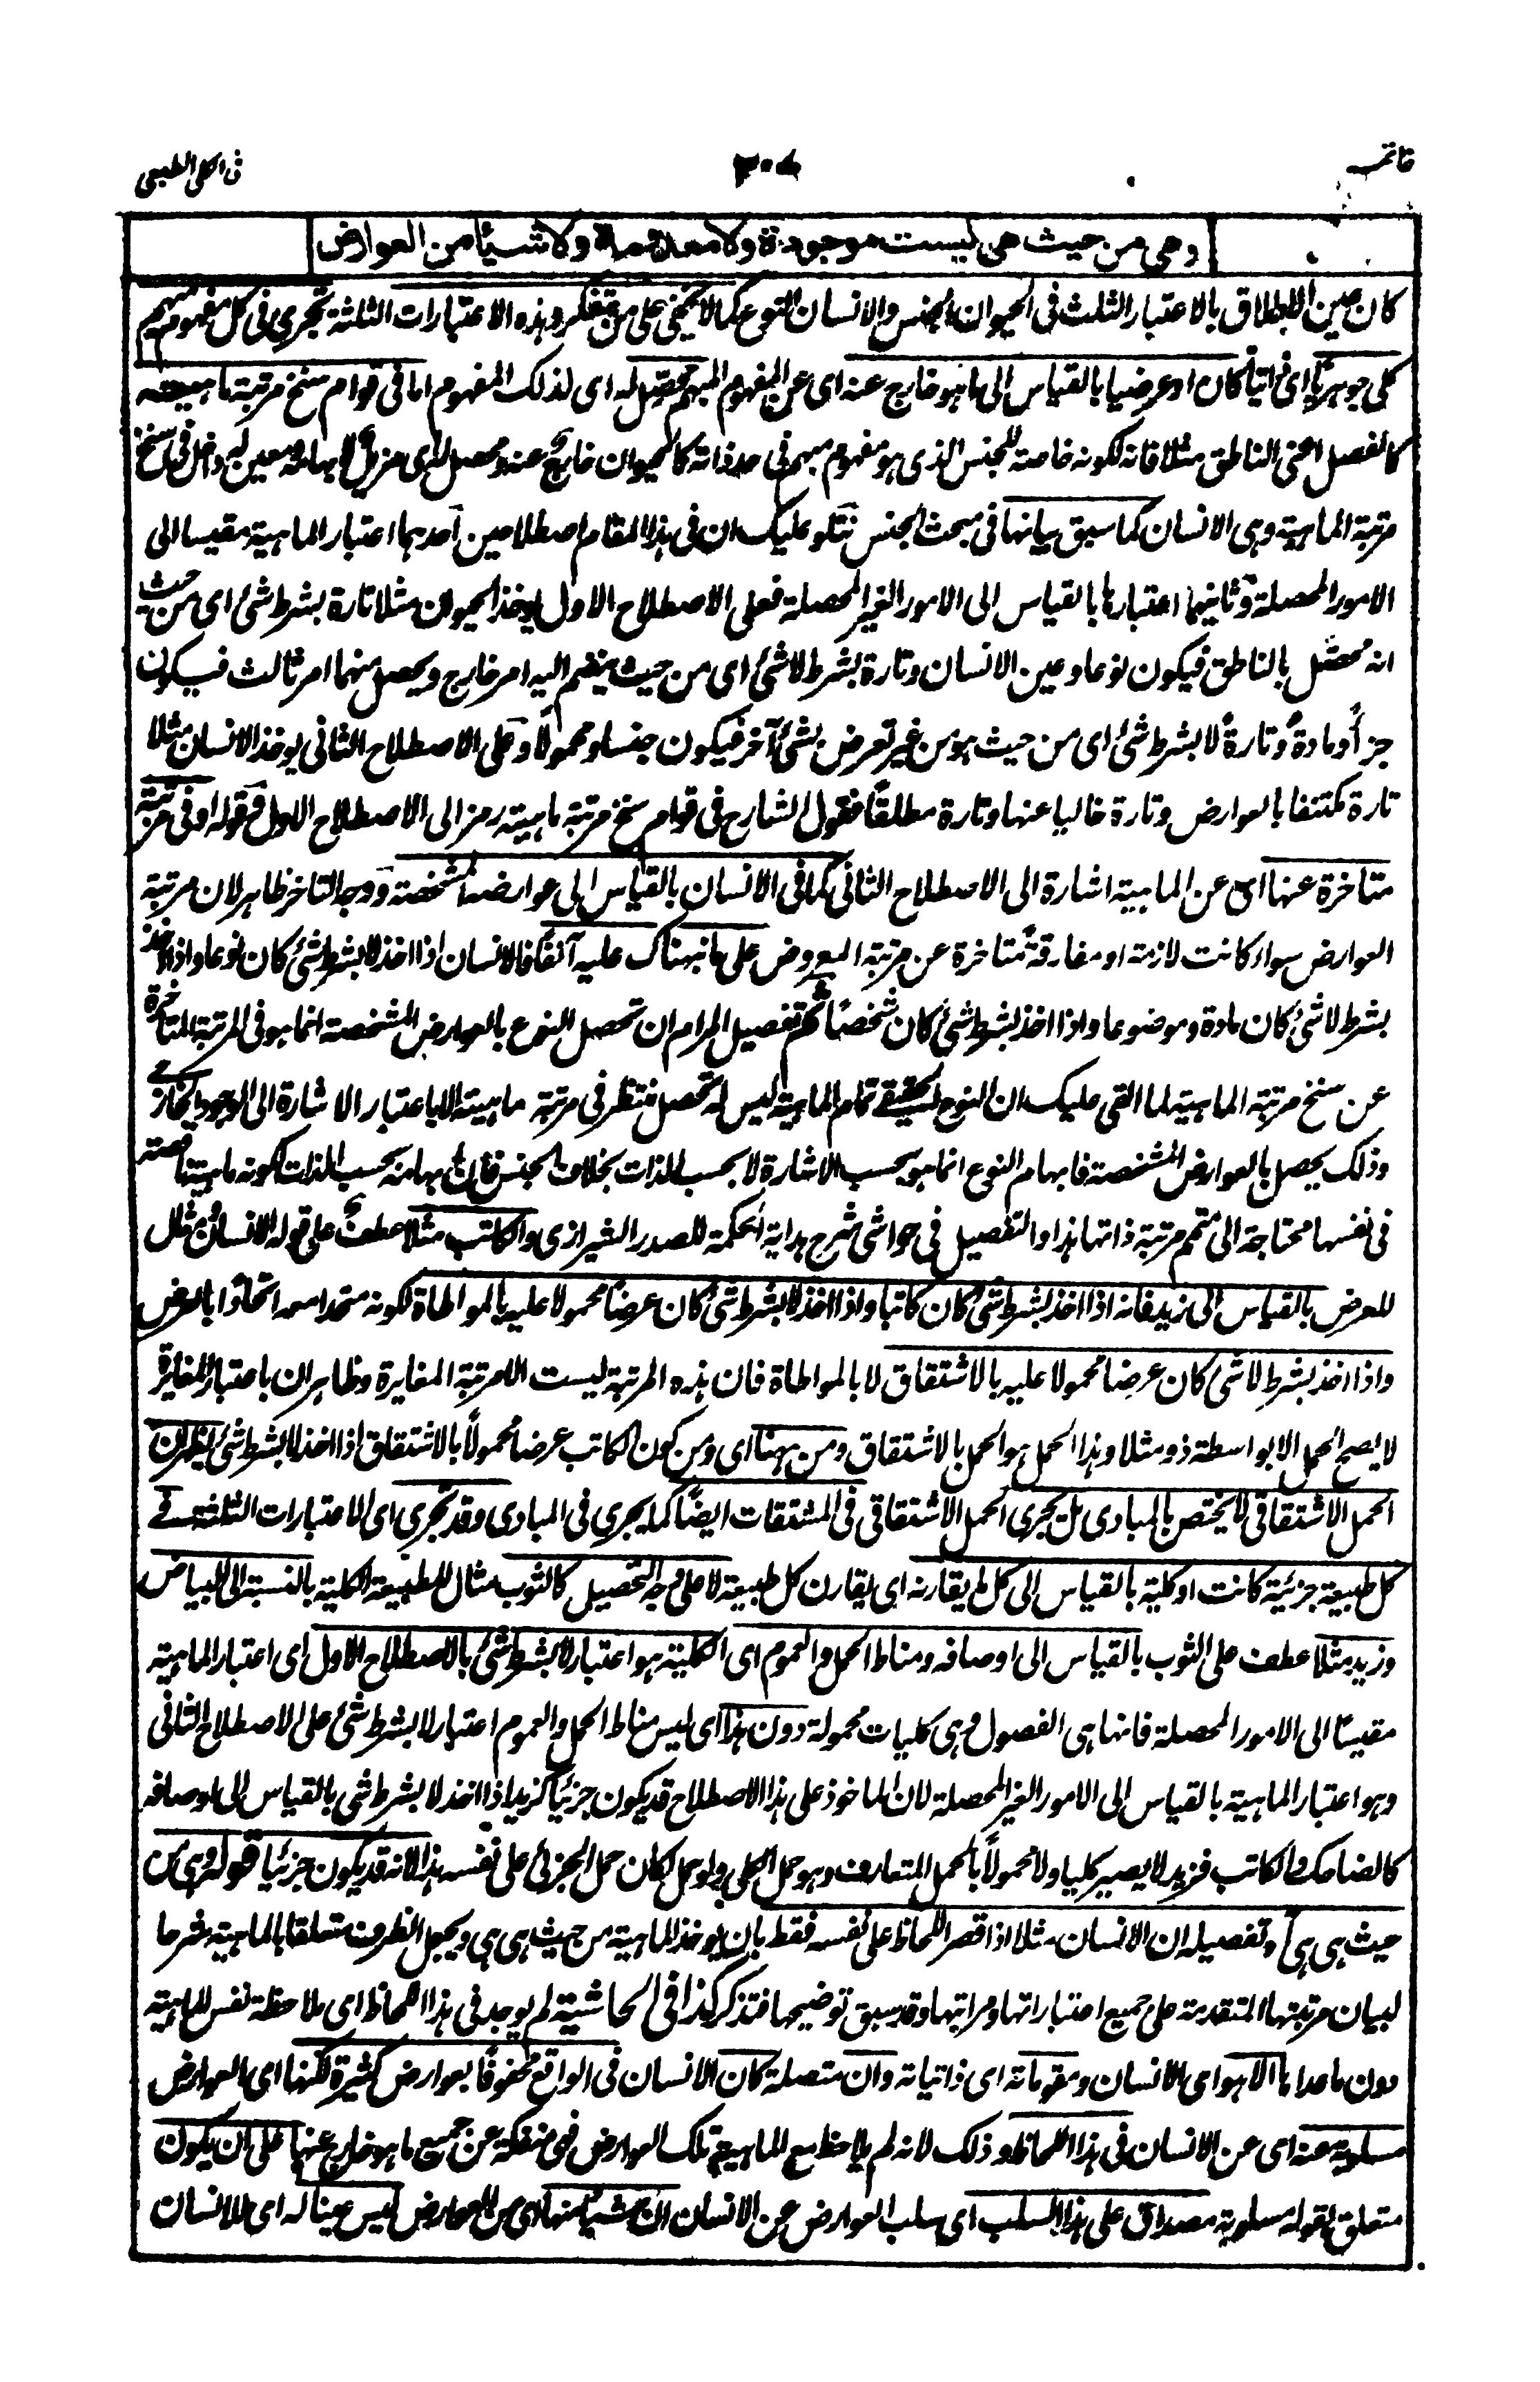 خاتمہ
٢٠٤
فی الکلی الطبیعی
وهی من حیث هی لیست موجودة ولا معدومة ولا شیئا من العوارض
کان حین الاطلاق بالاعتبار الثلث فی الحیوان الجنس والانسان النوع کما لا یخفی علی من تفکر وهذه الاعتبارات الثلثة تجری فی کل مفهوم مبهم
کلی جوهریا ای ذاتیا کان او عرضیا بالقیاس الی ما هو خارج عنه ای عن المفهوم المبهم محصل له ای لذلک المفهوم اما فی قوام سنخ مرتبة ماهیته
کالفصل اعنی الناطق مثلا فانه لکونه خاصة للجنس الذی هو مفهوم مبهم فی حد ذاته کالحیوان خارج عنه ومحصل له ای مزیل لابهامه ومعین له داخل فی سنخ
مرتبة الماهیة وهی الانسان کما سبق بیانها فی مبحث الجنس نتلو علیک ان فی هذا المقام اصطلاحین احدهما اعتبار الماهیة مقیسا الی
الامور المحصلة وثانیهما اعتبارها بالقیاس الی الامور الغیر المحصلة فعلی الاصطلاح الاول یوخذ الحیوان مثلا تارة بشرط شئ ای من حیث
انه محصل بالناطق فیکون نوعا وعین الانسان وتارة بشرط لا شئ ای من حیث ینضم الیه امر خارج ویحصل منهما امر ثالث فیکون
جزأ ومادة وتارة لا بشرط شئ ای من حیث هو من غیر تعرض بشئ آخر فیکون جنسا ومحمولا وعلی الاصطلاح الثانی یوخذ الانسان مثلا
تارة مکتنفا بالعوارض وتارة خالیا عنها وتارة مطلقا فقول الشارح فی قوام سنخ مرتبة ماهیته رمز الی الاصطلاح الاول وقوله او فی مرتبة
متاخرة عنها ای عن الماهیة اشارة الی الاصطلاح الثانی کما فی الانسان بالقیاس الی عوارضه المشخصة ووجه التاخر ظاهر لان مرتبة
العوارض سواء کانت لازمة او مفارقة متاخرة عن مرتبة المعروض علی ما نبهناک علیه آنفا فالانسان اذا اخذ لا بشرط شئ کان نوعا واذا اخذ
بشرط لا شئ کان مادة وموضوعا واذا اخذ بشرط شئ کان شخصا ثم تفصیل المرام ان تحصل النوع بالعوارض المشخصة انما هو فی المرتبة المتاخرة
عن سنخ مرتبة الماهیة لما القی علیک ان النوع الحقیقے تمام الماهیة لیس له تحصل منتظر فی مرتبة ماهیته الا باعتبار الاشارة الی الوجود الخارجے
وذلک یحصل بالعوارض المشخصة فابهام النوع انما هو بحسب الاشارة لا بحسب الذات بخلاف الجنس فان ابهامه بحسب الذات لکونه ماهیة ناقصة
فی نفسها محتاجة الی متمم مرتبة ذاتها هذا والتفصیل فی حواشی شرح هدایة الحکمة للصدر الشیرازی والکاتب مثلا عطف علی قوله الانسان مثال
للعرض بالقیاس الی زید فانه اذا اخذ بشرط شئ کان کاتبا واذا اخذ لا بشرط شئ کان عرضا محمولا علیه بالمواطاة لکونه متحدا معه اتحادا بالعرض
واذا اخذ بشرط لا شئ کان عرضا محمولا علیه بالاشتقاق لا بالمواطاة فان هذه المرتبة لیست الا مرتبة المغایرة وظاهر ان باعتبار المغایرة
لا یصح الحمل الا بواسطة ذو مثلا وهذا الحمل هو الحمل بالاشتقاق ومن ههنا ای ومن کون الکاتب عرضا محمولا بالاشتقاق اذا اخذ لا بشرط شئ یظهر ان
الحمل الاشتقاقی لا یختص بالمبادی بل یجری الحمل الاشتقاقی فی المشتقات ایضا کما یجری فی المبادی وقد تجری ای الاعتبارات الثلثة فے
کل طبیعة جزئیة کانت او کلیة بالقیاس الی کل ما یقارنه ای یقارن کل طبیعة لا علی وجه التحصیل کالثوب مثال للطبیعة الکلیة بالنسبة الی البیاض
وزید مثلا عطف علی الثوب بالقیاس الی اوصافه ومناط الحمل والعموم ای الکلیة هو اعتبار لا بشرط شئ بالاصطلاح الاول ای اعتبار الماهیة
مقیسا الی الامور المحصلة فانها هی الفصول وهی کلیات محمولة دون هذا ای لیس مناط الحمل والعموم اعتبار لا بشرط شئ علی الاصطلاح الثانی
وهو اعتبار الماهیة بالقیاس الی الامور الغیر المحصلة لان الماخوذ علی هذا الاصطلاح قد یکون جزئیا کزید اذا اخذ لا بشرط شی بالقیاس الی اوصافه
کالضاحک والکاتب فزید لا یصیر کلیا ولا محمولا بالحمل المتعارف وهو حمل الکلی ولو حمل لکان حمل الجزئی علی نفسه هذا لانه قد یکون جزئیا قوله وهی من
حیث هی هی وتفصیله ان الانسان مثلا اذا قصر اللحاظ علی نفسه فقط بان یوخذ الماهیة من حیث هی هی ویجعل الظرف متعلقا بالماهیة شرحا
لبیان مرتبتها المتقدمة علی جمیع اعتباراتها ومراتبها وقد سبق توضیحها فتذکر کذا فی الحاشیة لم یوجد فی هذا اللحاظ ای ملاحظة نفس الماهیة
دون ما عداها الا هو ای الانسان ومقوماته ای ذاتیاته وان متصلة کان الانسان فی الواقع محفوفا بعوارض کثیرة لکنها ای العوارض
مسلوبة عنه ای عن الانسان فی هذا اللحاظ وذلک لانه لم یلاحظ مع الماهیة تلک العوارض فهی منفکة عن جمیع ما هو خارج عنها علی ان یکون
متعلق بقوله مسلوبة مصداق علی هذا السلب ای سلب العوارض عن الانسان ان شیئا منها ای من العوارض لیس عینا له ای للانسان